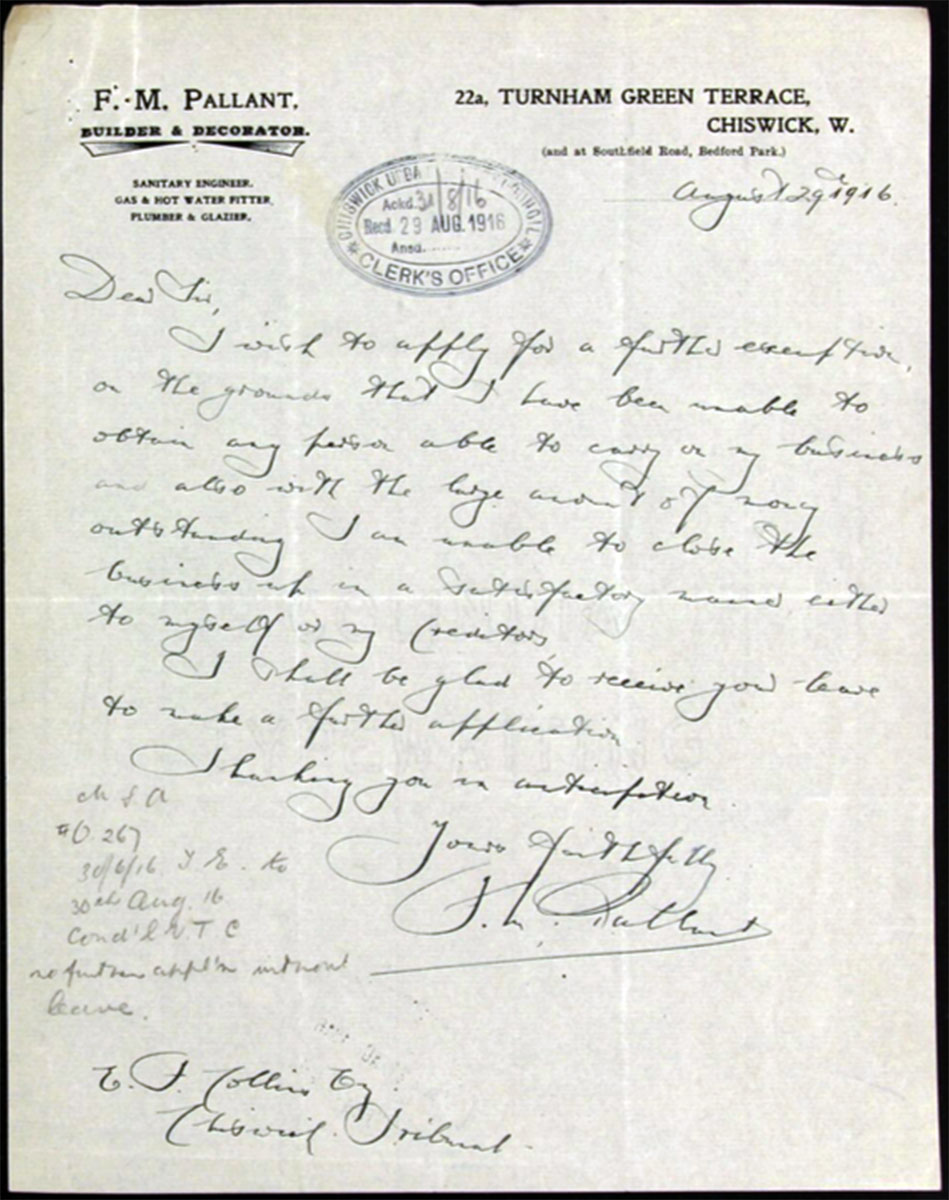 F. M. PALLANT,
BUILDER & DECORATOR.
SANITARY ENGINEER,
GAS & HOT WATER FITTER,
PLUMBER & GLAZIER.
22a, TURNHAM GREEN TERRACE,
CHISWICK, W.
(and at Southfield Road, Bedford Park.)
August 29 1916.
CHISWICK URBAN COUNCIL
Ackd. 31/8/16
Recd. 29 AUG. 1916
Ansd.
CLERK'S OFFICE
Dear Sir,
I wish to apply for a further exemption,
on the grounds that I have been unable to
obtain any person able to carry on my business
and also with the large amount of money
outstanding I am unable to close the
business up in a satisfactory manner either
to myself or my Creditors
I shall be glad to receive your leave
to make a further application
Thanking you in anticipation.
Yours faithfully
F. M. Pallant
M S A
267
30/6/16 T. E. to
30th Aug. 16
Cond'l V. T C
no further appl'n without
leave.
E. F. Collins Esq
Chiswick Tribunal.